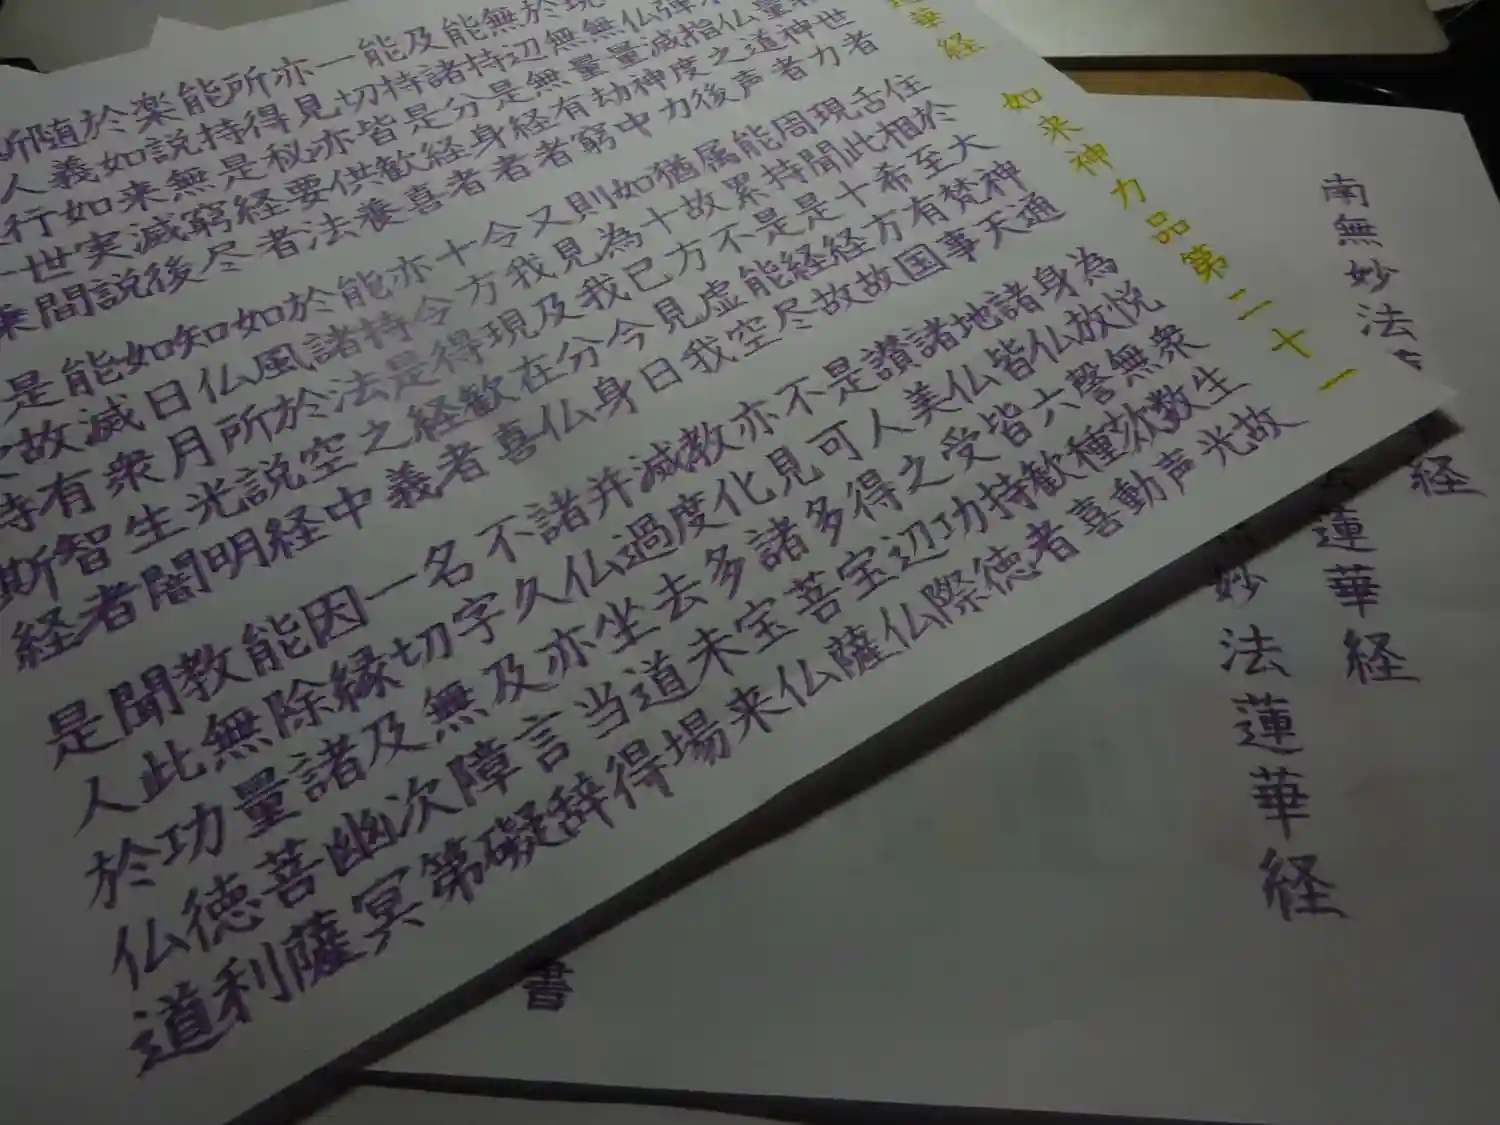 南無妙法
経
蓮華経
妙法蓮華経
書
華経 如来神力品第二十一
世者 住於大神通 為悦衆生故
量神力 舌相至梵天 身放無数光
仏道者 現此希有事 諸仏謦欬声
弾指之声 周聞十方国 地皆六種動
仏滅度後 能持是経故 諸仏皆歓喜
現無量神力 属累是経故 讃美受持者
於無量劫中 猶故不能尽 是人之功徳
無辺無有窮 如十方虚空 不可得辺際
能持是経者 則為已見我 亦見多宝仏
及諸分身者 又見我今日 教化諸菩薩
能持是経者 令我及分身 滅度多宝仏
一切皆歓喜 十方現在仏 并過去未来
亦見亦供養 亦令得歓喜 諸仏坐道場
所得秘要法 能持是経者 不久亦当得
能持是経者 於諸法之義 名字及言辞
楽説無窮尽 如風於空中 一切無障礙
於如来滅後 知仏所説経 因縁及次第
随義如実説 如日月光明 能除諸幽冥
斯人行世間 能滅衆生闇 教無量菩薩
一乗 是故有智者 聞此功徳利
持斯経 是人於仏道